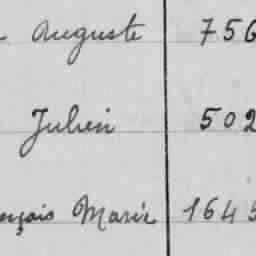 Auguste 756
Julien 502
nçois Marie 1645